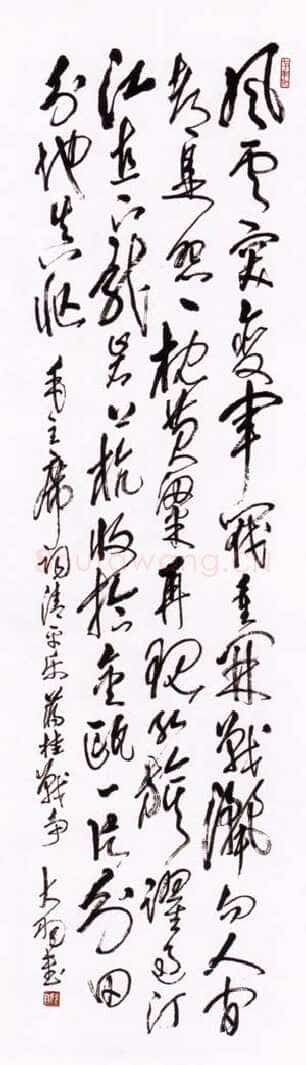 风雲突變军阀重開戰灑向人间
都是怨一枕黄粱再现红旗躍过汀
江直下龍岩上杭收拾金甌一片分田
分地真忙
毛主席词清平乐蒋桂战争